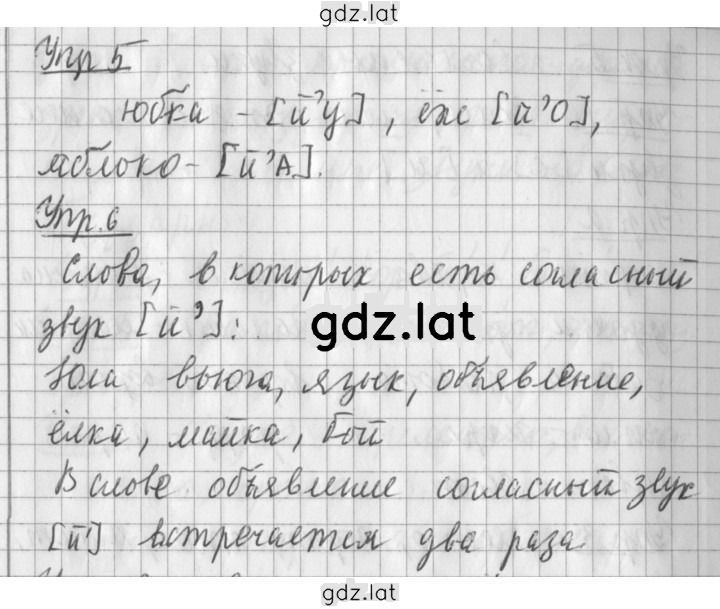 gdz.lat
Упр 5
юбка - [й'у], ёж [й'О],
яблоко - [й'А].
Упр. 6
Слова, в которых есть согласный
звук [й']:
gdz.lat
Юла вьюга, язык, объявление,
ёлка, майка, бой
В слове объявление согласный звук
[й'] встречается два раза
gdz.lat